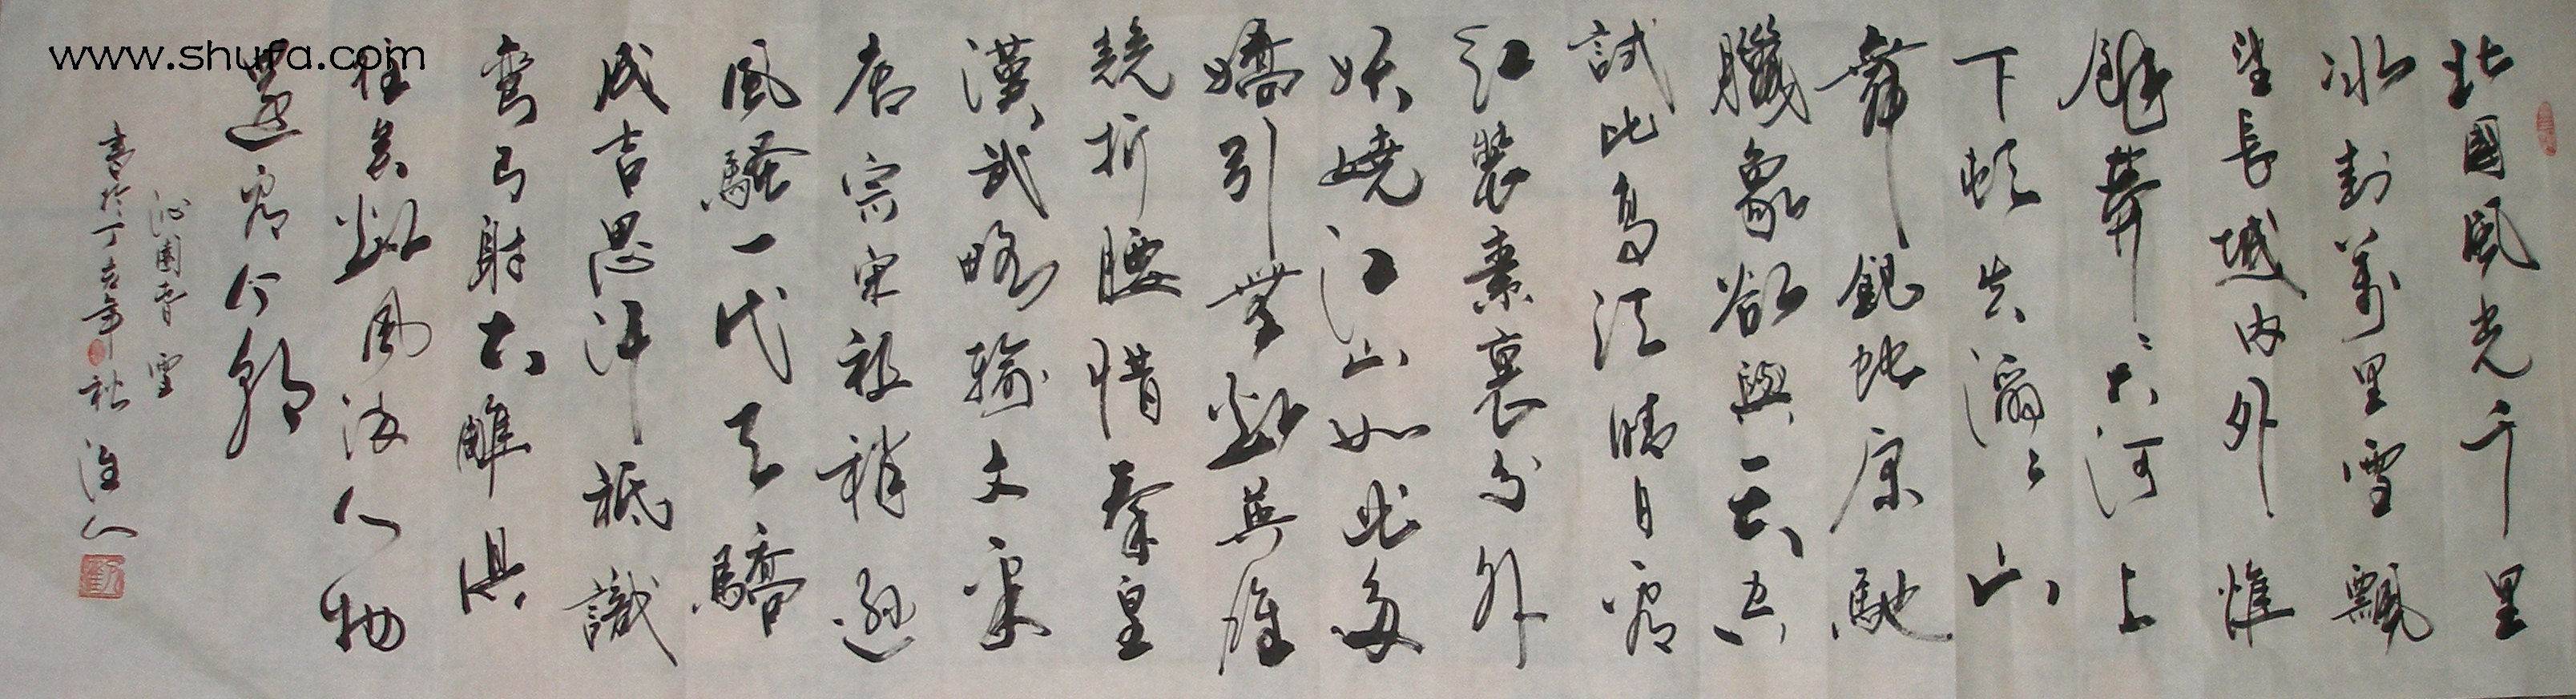 北國風光千里
冰封萬里雪飄
望長城內外惟
餘莽〻大河上
下頓失滔〻山
舞銀蛇原馳
臘象欲與天公
試比高須晴日看
紅裝素裹分外
妖嬈江山如此多
嬌引無數英雄
競折腰惜秦皇
漢武略輸文采
唐宗宋祖稍遜
風騷一代天驕
成吉思汗祗識
彎弓射大雕俱
往矣數風流人物
還看今朝
沁園春 雪
書於丁亥年秋
www.shufa.com